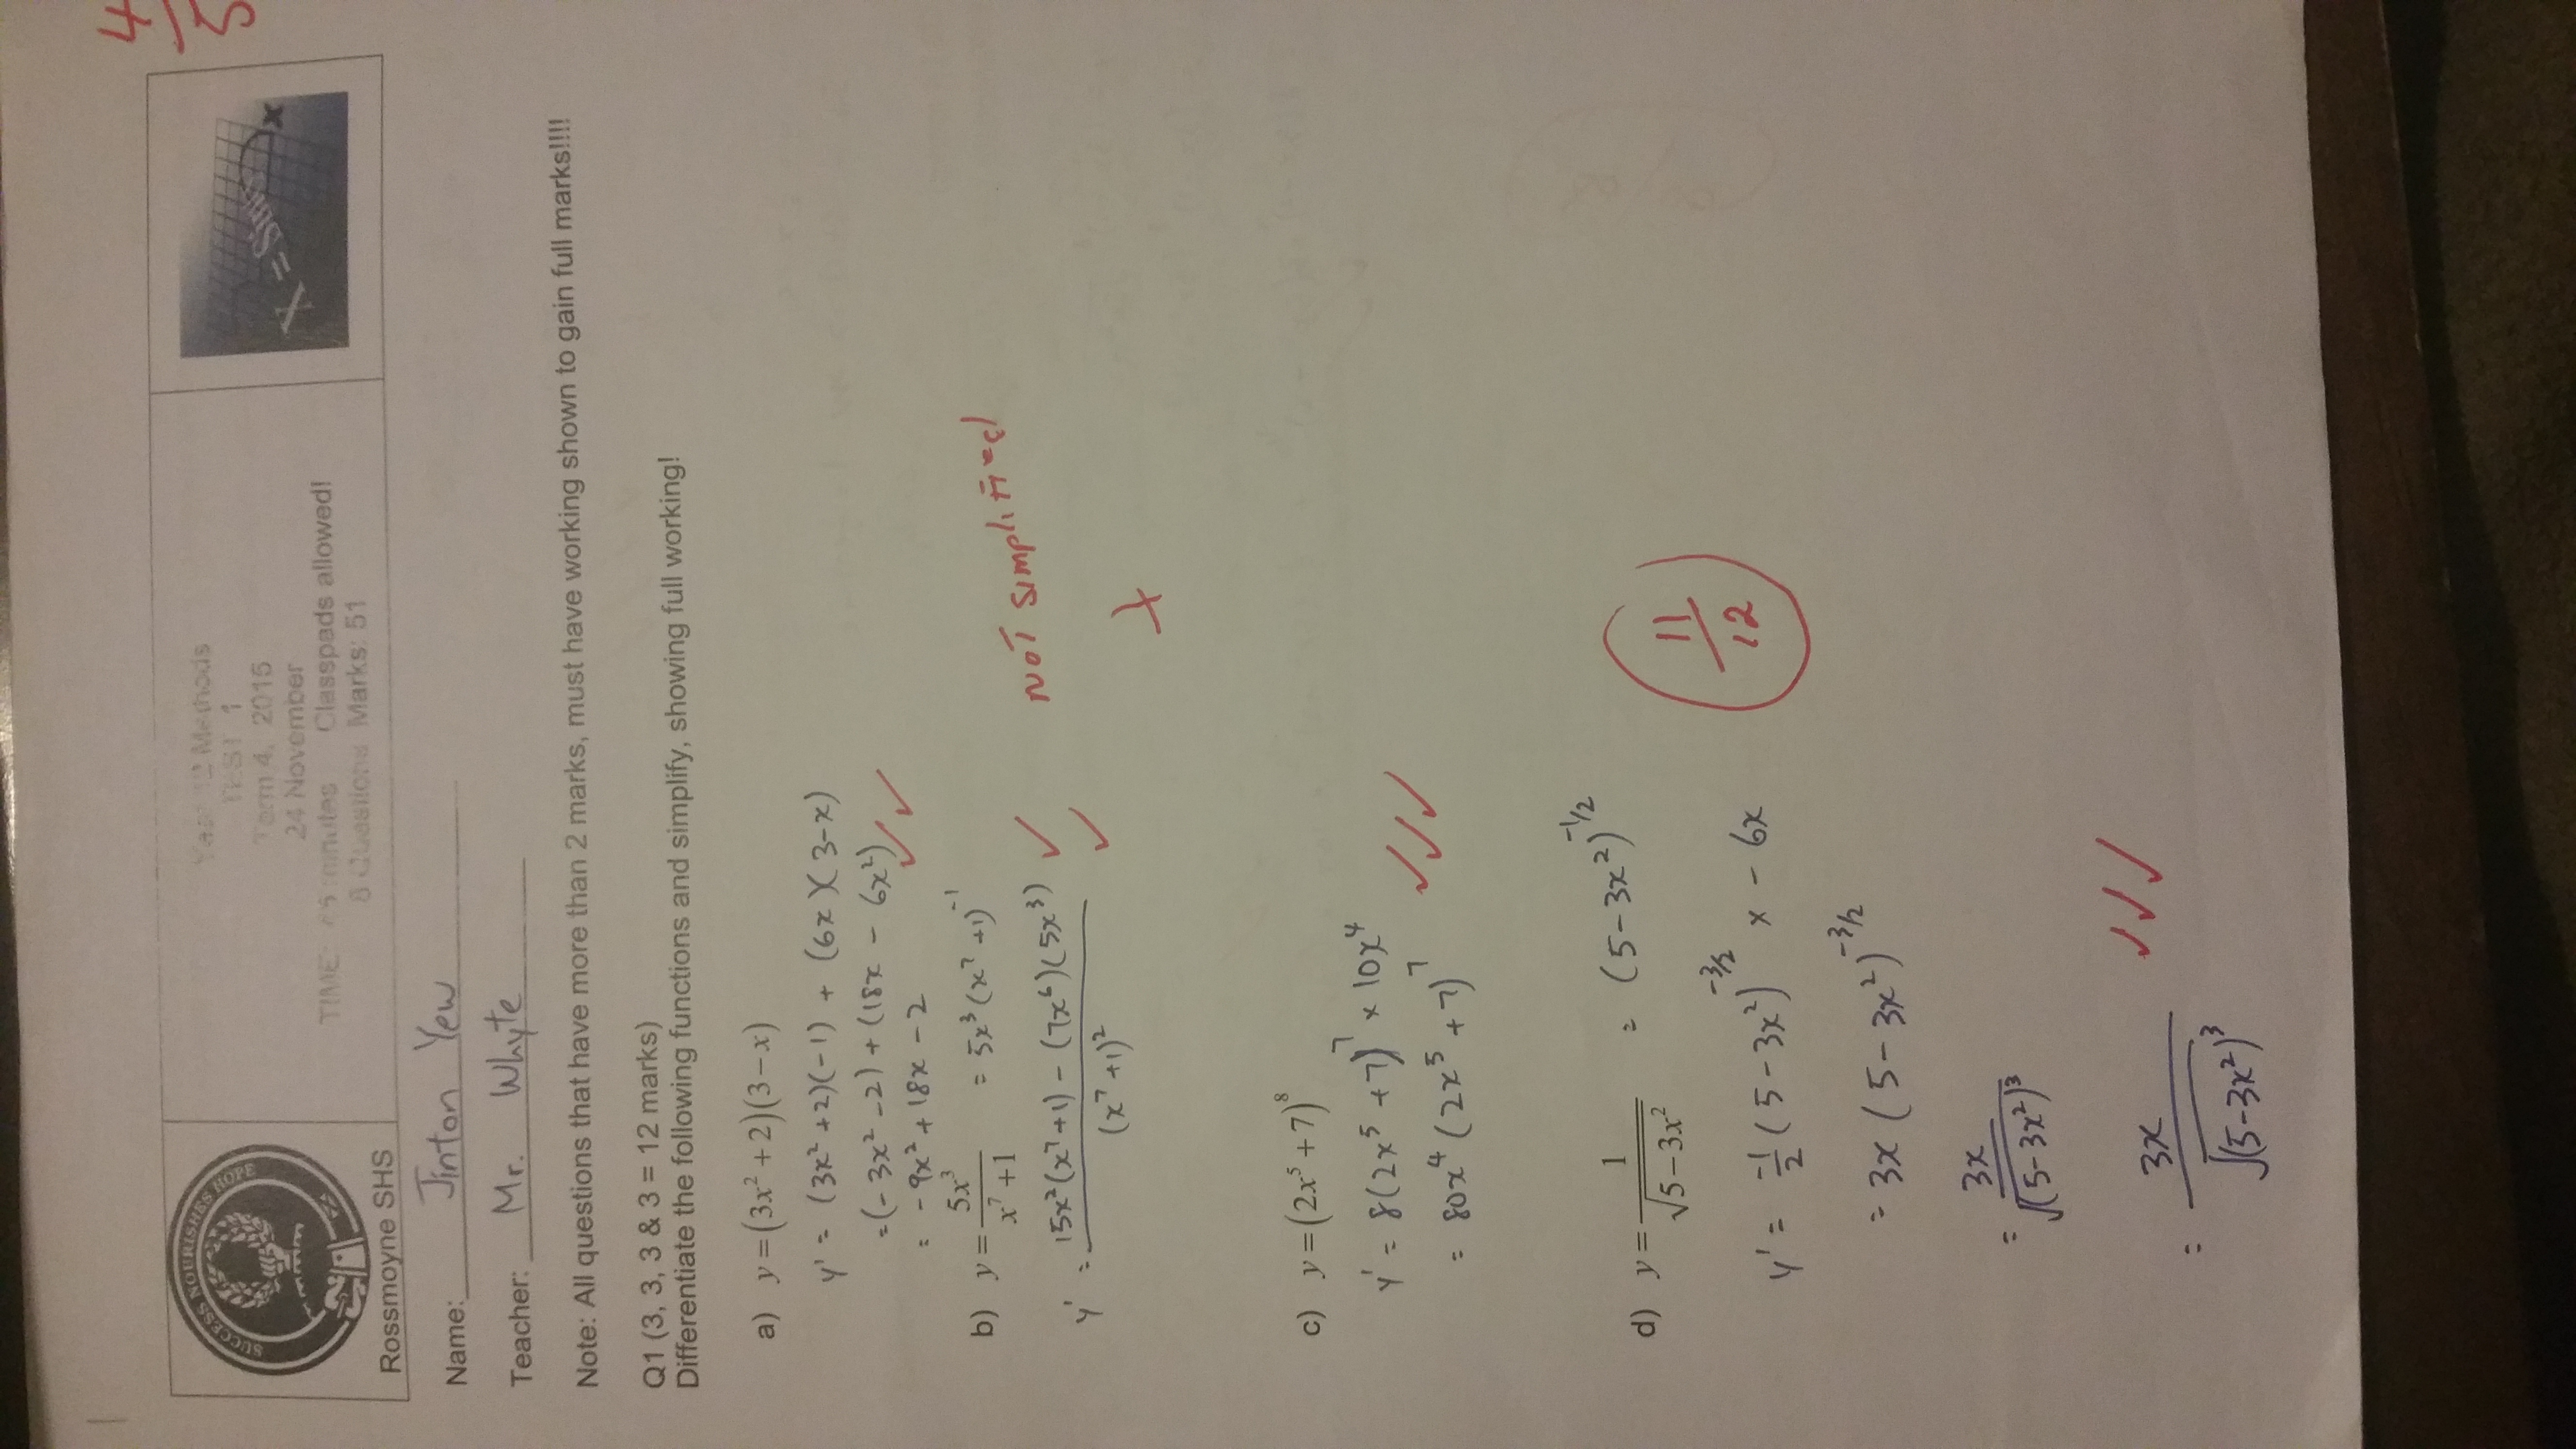 4/5
SUCCESS NOURISHES HOPE
Rossmoyne SHS
Year 12 Methods
TEST 1
Term 4, 2015
24 November
TIME: 45 minutes Classpads allowed!
8 Questions Marks: 51
X = Sin
Name: Jinton Yew
Teacher: Mr. Whyte
Note: All questions that have more than 2 marks, must have working shown to gain full marks!!!!
Q1 (3, 3, 3 & 3 = 12 marks)
Differentiate the following functions and simplify, showing full working!
a) y = (3x² + 2)(3 − x)
y' = (3x² + 2)(−1) + (6x)(3−x)
= (−3x² −2) + (18x − 6x²)
= −9x² + 18x − 2
b) y = 5x³/(x⁷ + 1) = 5x³(x⁷ + 1)⁻¹
NOT simplified
y' = (15x²(x⁷+1) − (7x⁶)(5x³))/(x⁷+1)²
c) y = (2x⁵ + 7)⁸
y' = 8(2x⁵ + 7)⁷ × 10x⁴
= 80x⁴(2x⁵ + 7)⁷
d) y = 1/√(5−3x²) = (5−3x²)^(-1/2)
11/12
y' = -1/2 (5−3x²)^(-3/2) × −6x
= 3x(5−3x²)^(-3/2)
= 3x/√(5−3x²)³
= 3x/√(5−3x²)³